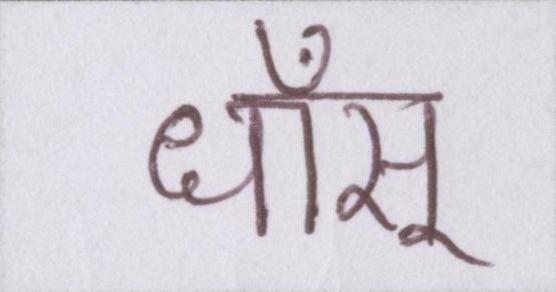 धाँसू